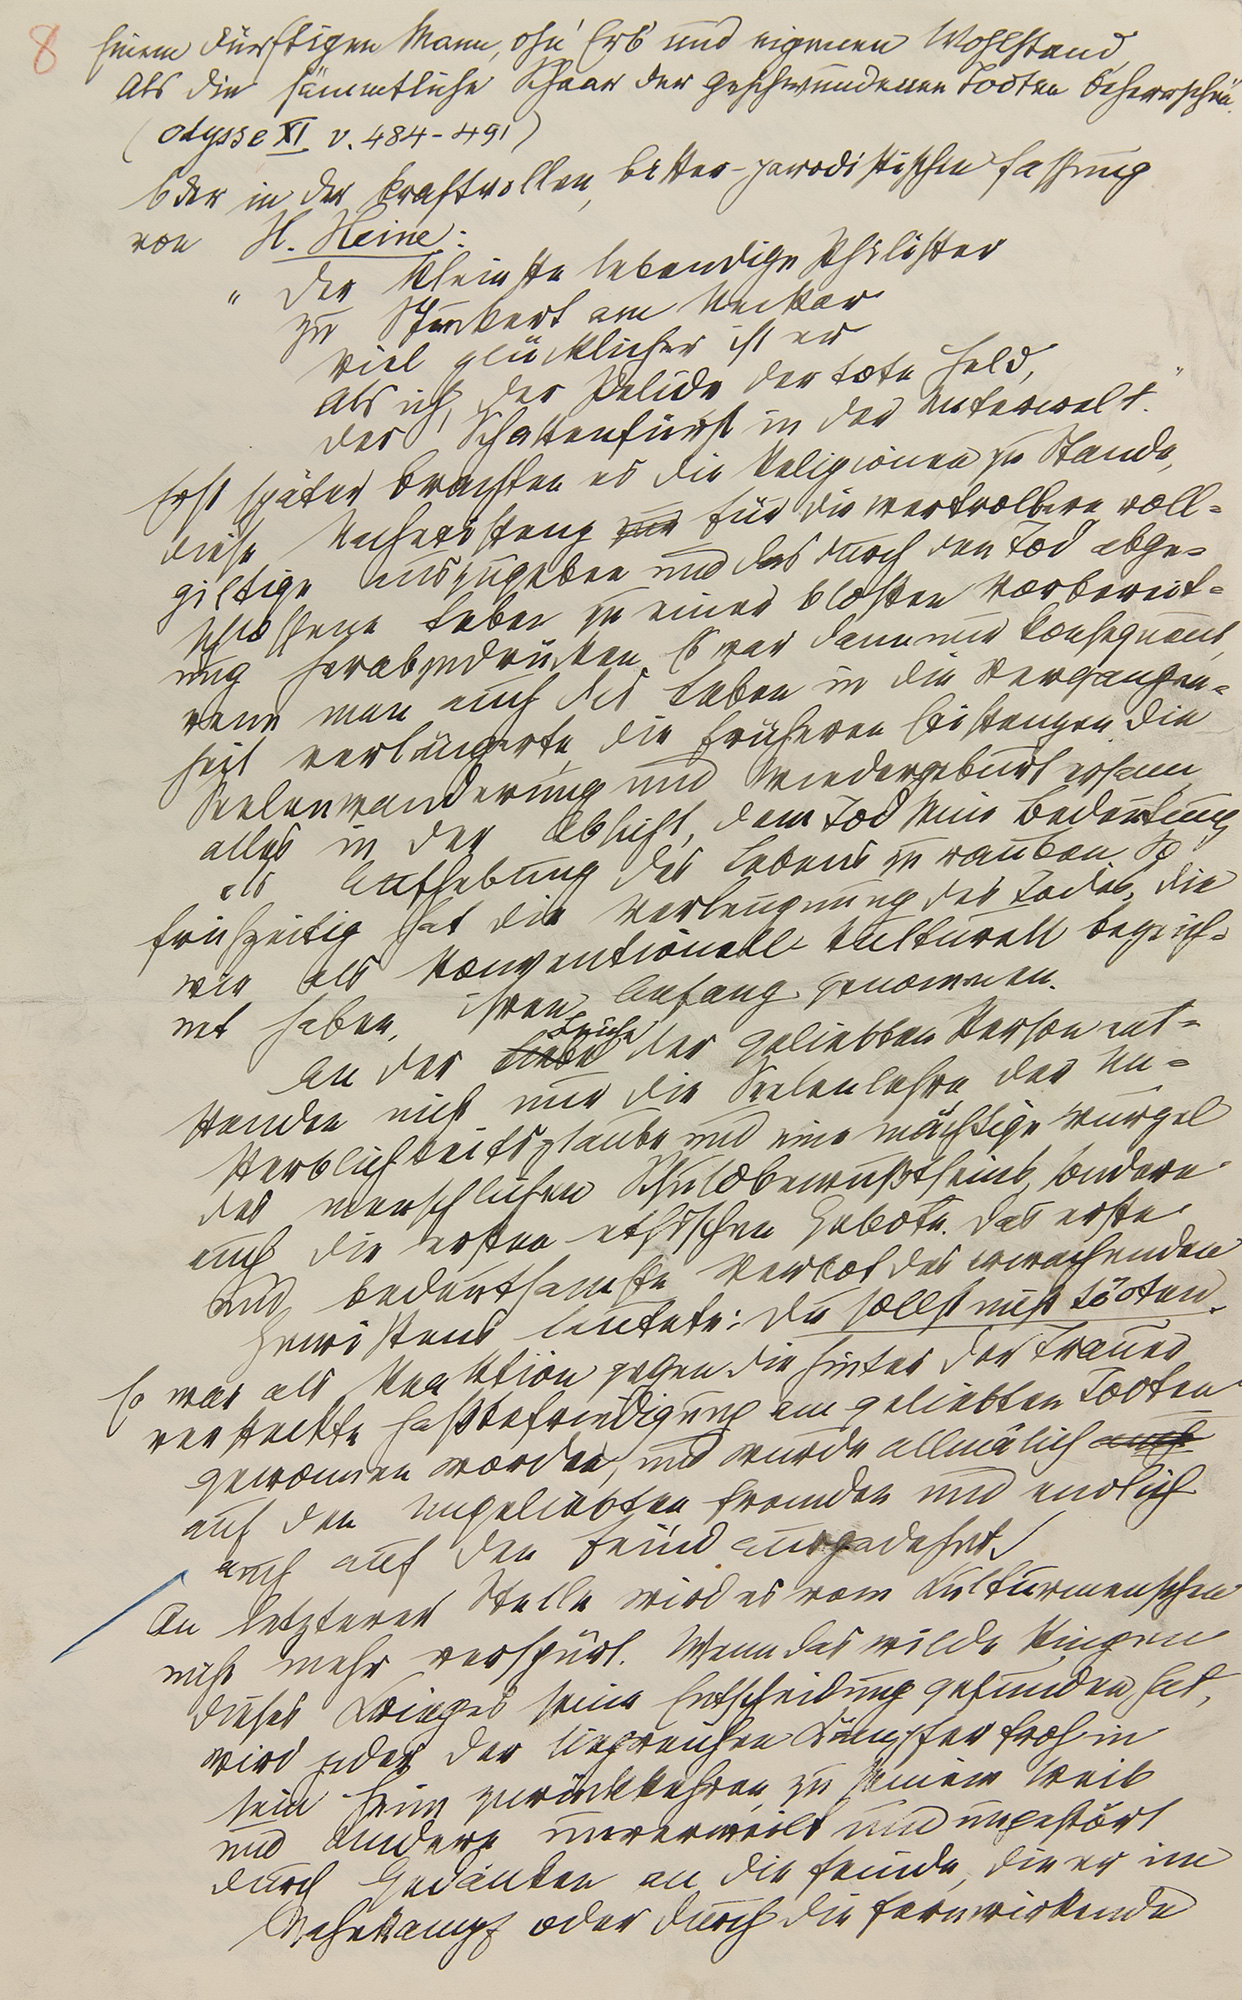 8
Einem dürftigen Mann, ohn' Erb' und eigenen Wohlstand,
Als die sämmtliche Schaar der geschwundenen Todten beherrschen.
(Odysse XI v. 484-491)
Oder in der kraftvollen, bitter-parodistischen Fassung
von H. Heine:
„Der kleinste lebendige Philister
zu Stuckert am Neckar
viel glücklicher ist er
Als ich, der Pelide, der tote Held,
der Schattenfürst in der Unterwelt."
Erst später brachten es die Religionen zu Stande,
diese Nachexistenz für die wertvollere voll-
giltige auszugeben und das durch den Tod abge-
schlossene Leben zu einer bloßen Vorbereit-
ung herabzudrücken. Es war dann nur konsequent,
wenn man auch das Leben in die Vergangen-
heit verlängerte, die früheren Existenzen, die
Seelenwanderung und Wiedergeburt ersann
alles in der Absicht, dem Tod seine Bedeutung
als Aufhebung des Lebens zu rauben. So
frühzeitig hat die Verleugnung des Todes, die
wir als konventionell kulturell bezeich-
net haben, ihren Anfang genommen.
An der Leiche der geliebten Person ent-
standen nicht nur die Seelenlehre, der Un-
sterblichkeitsglaube und eine mächtige Wurzel
des menschlichen Schuldbewußtseins, sondern
auch die ersten ethischen Gebote. Das erste
und bedeutsamste Verbot des erwachenden
Gewissens lautete: Du sollst nicht töten.
Es war als Reaktion gegen die hinter der Trauer
versteckte Haßbefriedigung am geliebten Todten
gewonnen worden, und wurde allmälich auch
auf den ungeliebten Fremden und endlich
auch auf den Feind ausgedehnt.
An letzterer Stelle wird es vom Kulturmenschen
nicht mehr verspürt. Wenn das wilde Ringen
dieses Krieges seine Entscheidung gefunden hat,
wird jeder der siegreichen Kämpfer froh in
sein Heim zurückkehren, zu seinem Weib
und Kindern, unverweilt und ungestört
durch Gedanken an die Feinde, die er im
Nahekampf oder durch die fernwirkende